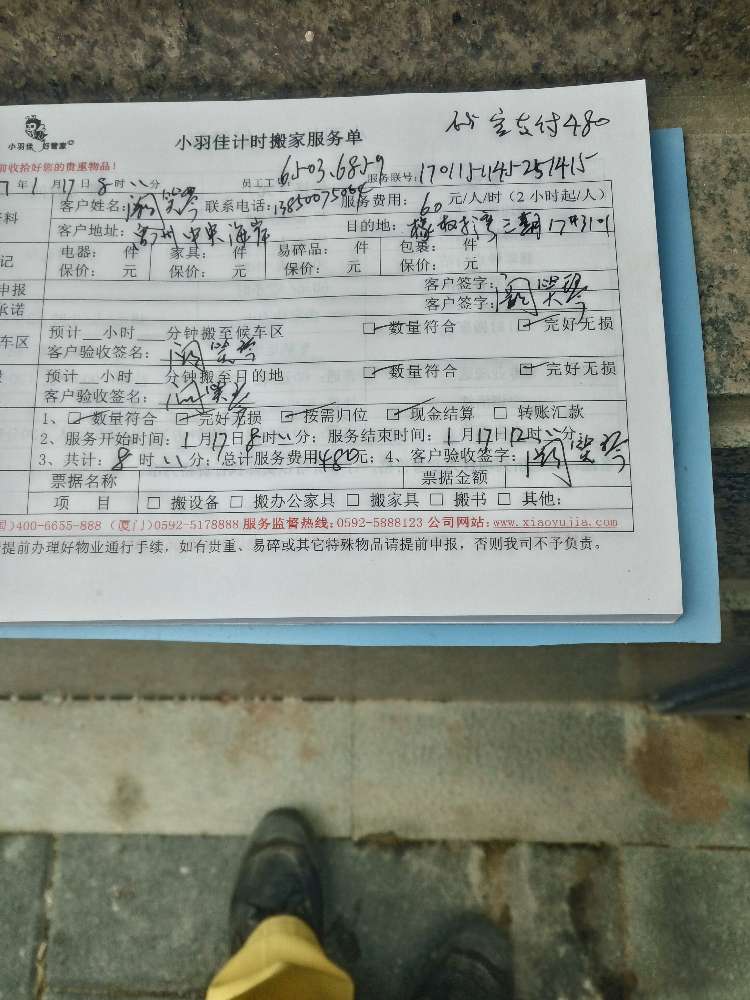 小羽佳 好管家
小羽佳计时搬家服务单
支付480
前收拾好您的贵重物品！
年1月17日8时 分 员工工 6503.6859 服务联号：1701151145251415
资料 客户姓名： 联系电话：13850075064 服务费用：60元/人/时（2小时起/人）
客户地址： 中央海岸 目的地： 湾三期17#3101
记 电器： 件 家具： 件 易碎品： 件 包裹： 件
保价： 元 保价： 元 保价： 元 保价： 元
申报 客户签字：
承诺 客户签字：
车区 预计__小时__分钟搬至候车区 ☑ 数量符合 ☑ 完好无损
客户验收签名：
预计__小时__分钟搬至目的地 ☑ 数量符合 ☑ 完好无损
客户验收签名：
1、☑ 数量符合 ☑ 完好无损 ☑ 按需归位 ☑ 现金结算 □ 转账汇款
2、服务开始时间：1月17日8时 分；服务结束时间：1月17日12时 分
3、共计：8时 分；总计服务费用480元；4、客户验收签字：
票据名称 票据金额
项 目 □ 搬设备 □ 搬办公家具 □ 搬家具 □ 搬书 □ 其他：
)400-6655-888（厦门)0592-5178888 服务监督热线：0592-5888123 公司网站：www.xiaoyujia.com
提前办理好物业通行手续，如有贵重、易碎或其它特殊物品请提前申报，否则我司不予负责。